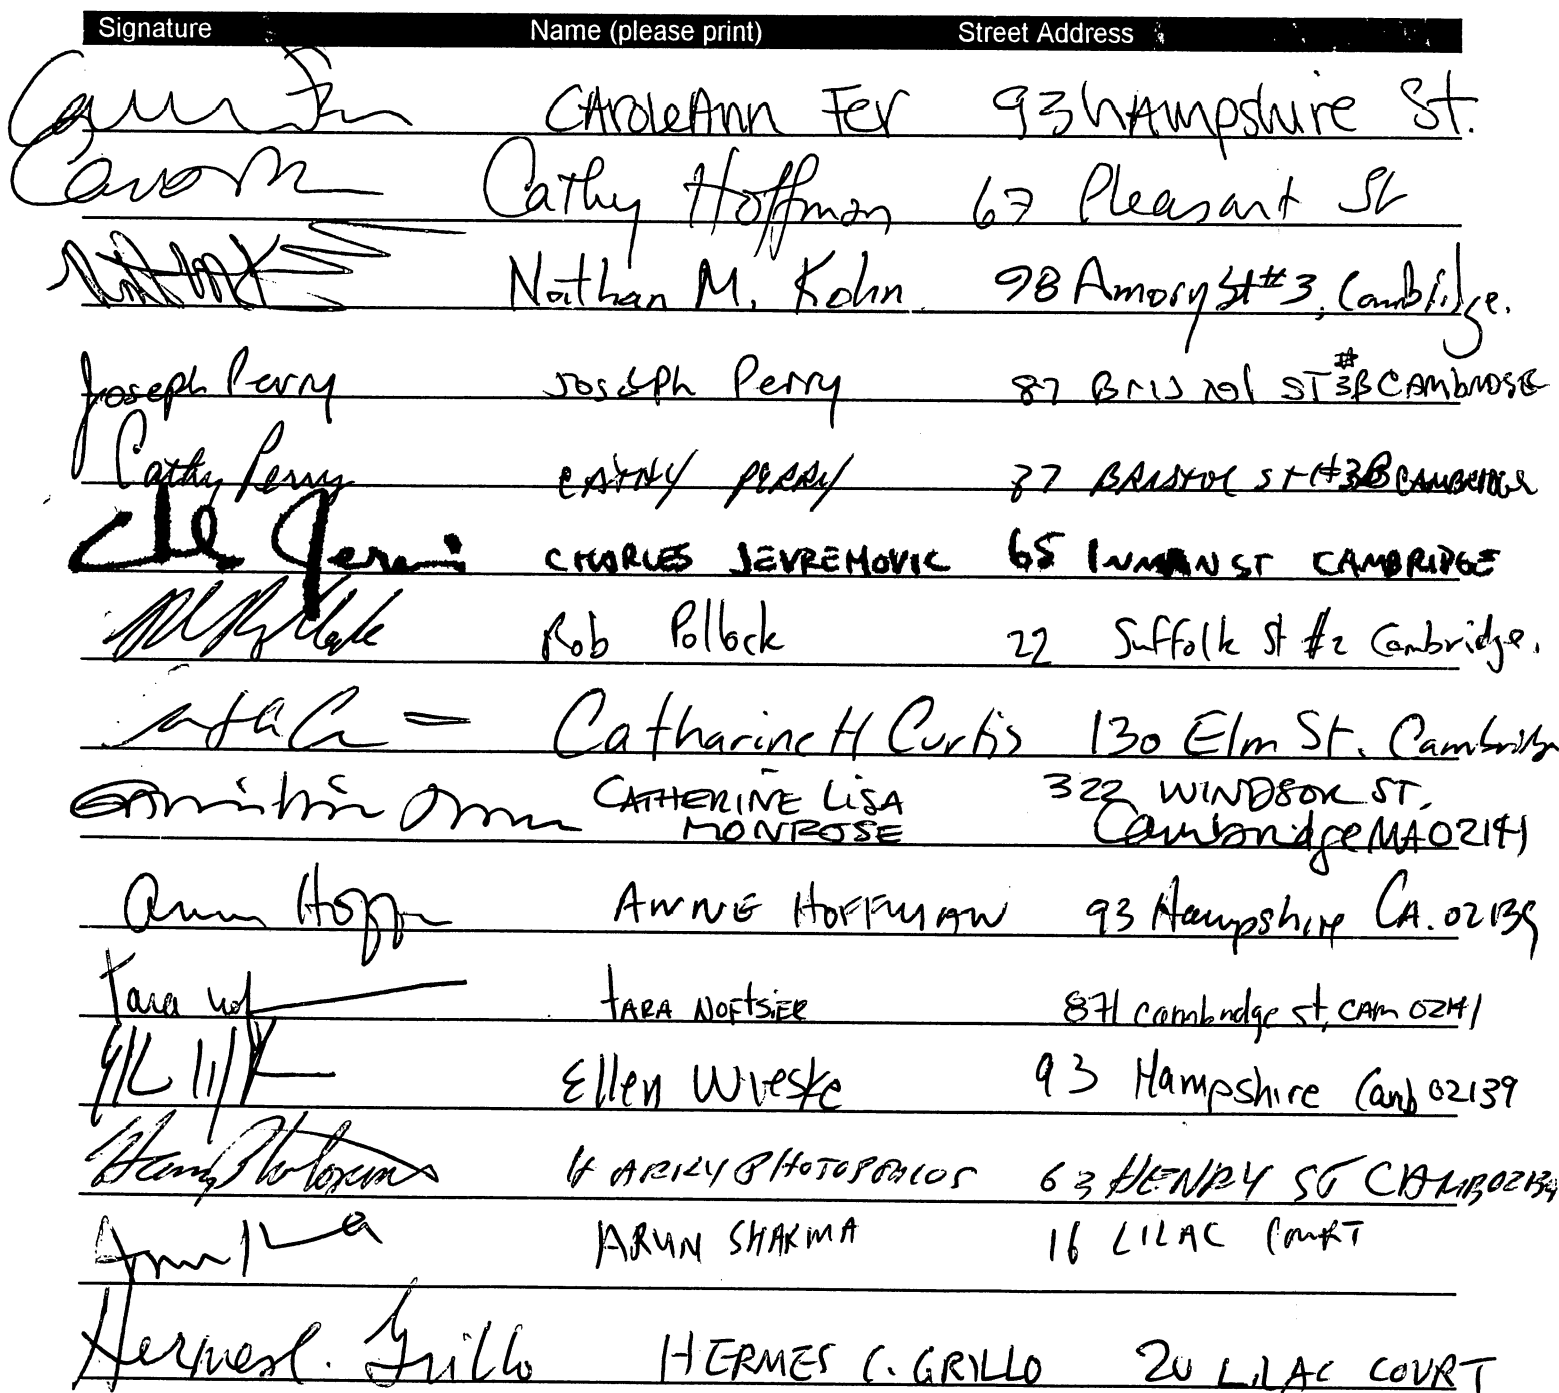 Signature Name (please print) Street Address
CAroleAnn Fer 93 hAmpshire St.
Cathy Hoffman 67 Pleasant St
Nathan M. Kohn 98 Amory St #3, Cambridge.
Joseph Perry Joseph Perry 87 Bristol ST #3B CAMbridge
Cathy Perry CATHY PERRY 87 BRISTOL ST #3B CAMBRIDGE
CHARLES JEVREMOVIC 65 INMAN ST CAMBRIDGE
Rob Pollock 22 Suffolk St #2 Cambridge.
Catharine H Curtis 130 Elm St. Cambridge
CATHERINE LiSA 322 WINDSOR ST.
MONROSE Cambridge MA 02141
ANNE HOFFMAN 93 Hampshire CA. 02139
Tara TARA NOFTSIER 871 cambridge st, CAM 02141
Ellen Wieske 93 Hampshire Camb 02139
HARRY PHOTOPOULOS 63 HENRY ST CAMB 02139
ARUN SHARMA 16 LILAC COURT
Hermes C. Grillo HERMES C. GRILLO 20 LILAC COURT